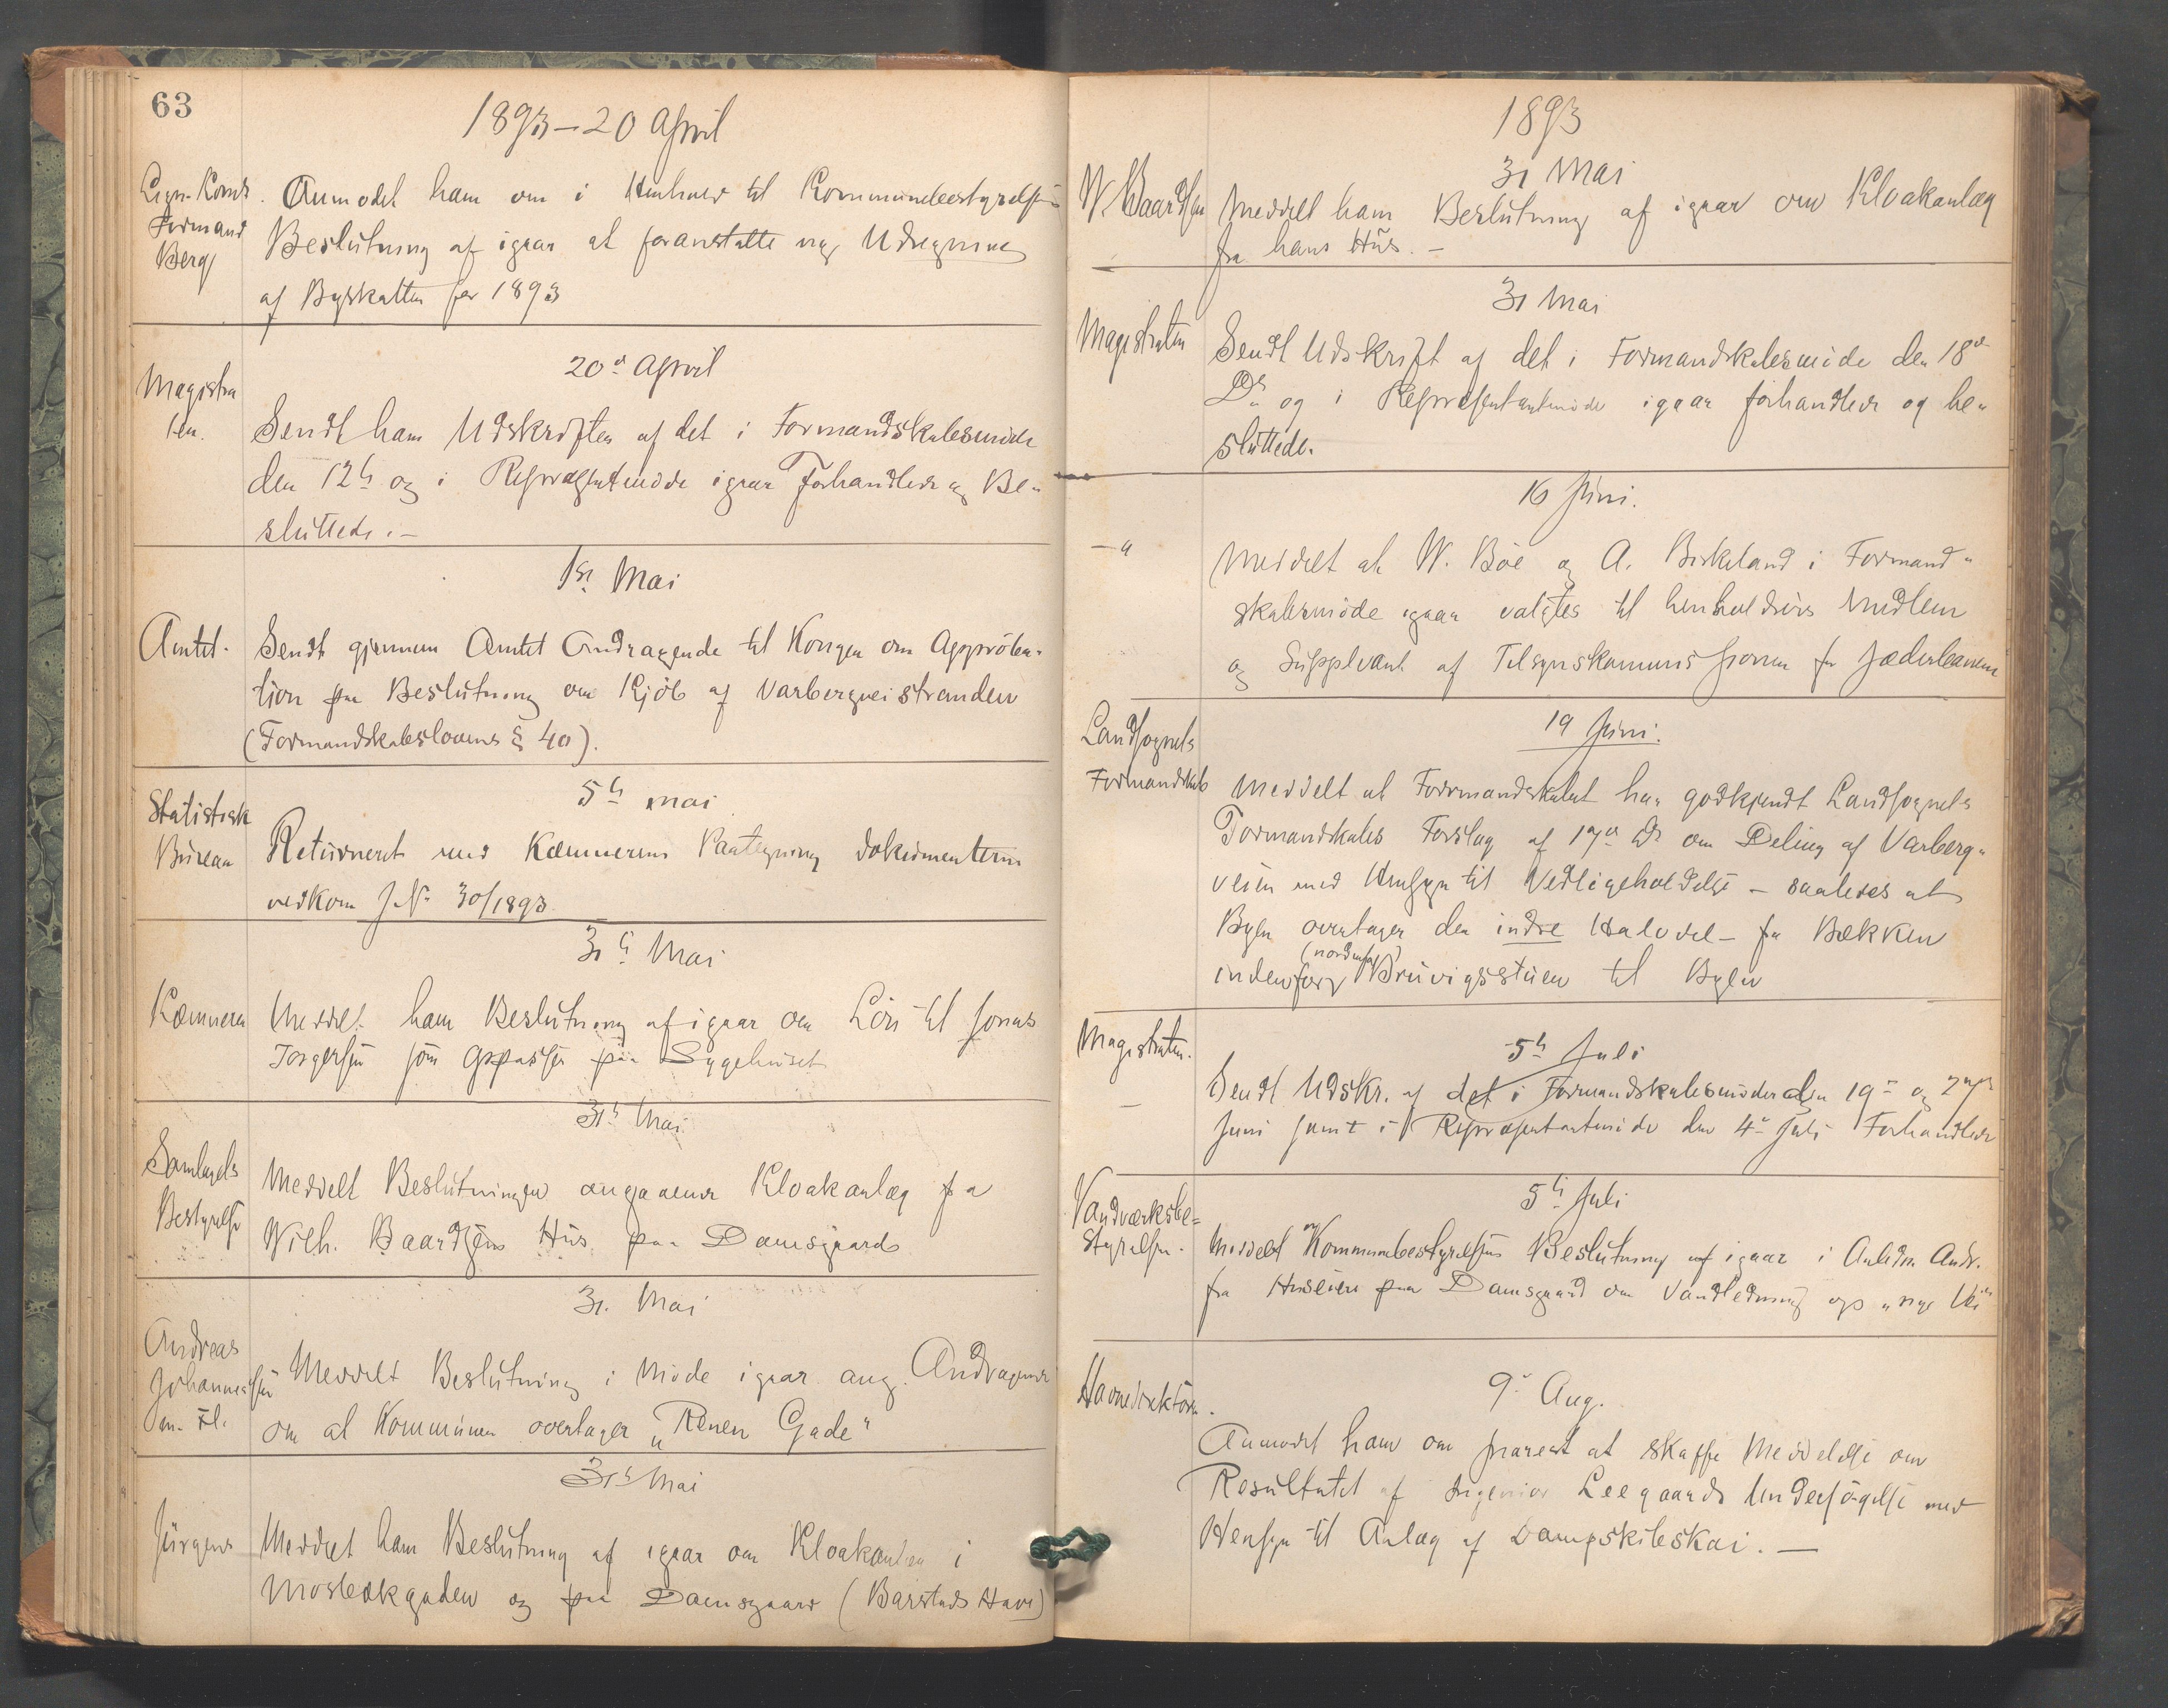 63
1893 – 20 April
Lign. Koms Formand Berg
Anmodet ham om i Henhold til Kommunebestyrelsens
Beslutning af igaar at foranstalte Udregning
af Byskatten for 1893
20de April
Magistra
ten.
Sendt ham Udskriften af det i Formandskabsmöde
den 12te og i Repræsentmöde igaar Forhandlede og Be-
sluttede. –
1ste Mai
Amtet.
Sendt gjennem Amtet Andragende til Kongen om Approba-
tion paa Beslutning om Kjöb af Varbergveistranden
(Formandskabslovens § 40).
5te mai
Statistisk
Bureau
Returneret med Kæmnerens Paategning dokumenterne
vedkom J. No 30/1893
31te Mai
Kæmneren
Meddelt ham Beslutning af igaar om Lön til Jonas
Torgersen som Opasser paa Sygehuset
31te Mai
Samlagets
Bestyrelse
Meddelt Beslutningen angaaende Kloakanlæg fra
Wilh. Baardsens Hus paa Damsgaard
31. Mai
Andreas
Johannessen
m. Fl.
Meddelt Beslutning i Möde igaar ang. Andragende
om at Kommunen overtager „Renen Gade"
31te Mai
Jürgens
Meddelt ham Beslutning af igaar om Kloakanlæg i
Mosbækgaden og paa Damsgaard (Barstads Have)
1893
31 Mai
W. Baardsen
Meddelt ham Beslutning af igaar om Kloakanlæg
fra hans Hus. –
31 Mai
Magistraten
Sendt Udskrift af det i Formandskabsmöde den 18de
Ds og i Repræsentantmöde igaar forhandlede og be-
sluttede.
16 Juni.
— "
Meddelt at W. Böe og A. Birkeland i Formand-
skabsmöde igaar valgtes til henholdsvis Medlem
og Suppleant af Tilsynskommissionen for Jæderbanen
19 Juni.
Landsognets
Formandskab
Meddelt at Formandskabet har godkjendt Landsognets
Formandskabs Forslag af 17de Ds om Deling af Varberg-
veien med Hensyn til Vedligeholdelse – saaledes at
Byen overtager den indre Halvdel – fra Bækken
(nordenfor)
indenfor Bruvigsstuen til Byen
5te Juli
Magistraten.
—
Sendt Udskr. af det i Formandskabsmöder den 19de og 27de
Juni samt i Repræsentantmöde den 4de Juli Forhandlede
5te Juli
Vandværksbe=
styrelsen.
Meddelt Kommunebestyrelsens Beslutning af igaar i Anledn. Andr.
fra Huseiere paa Damsgaard om Vandledning op „nye Vei"
9de Aug.
Havnedirektören.
Anmodet ham om snarest at skaffe Meddelelse om
Resultatet af Ingeniör Leegaards Undersögelse med
Hensyn til Anlæg af Dampskibskai. —